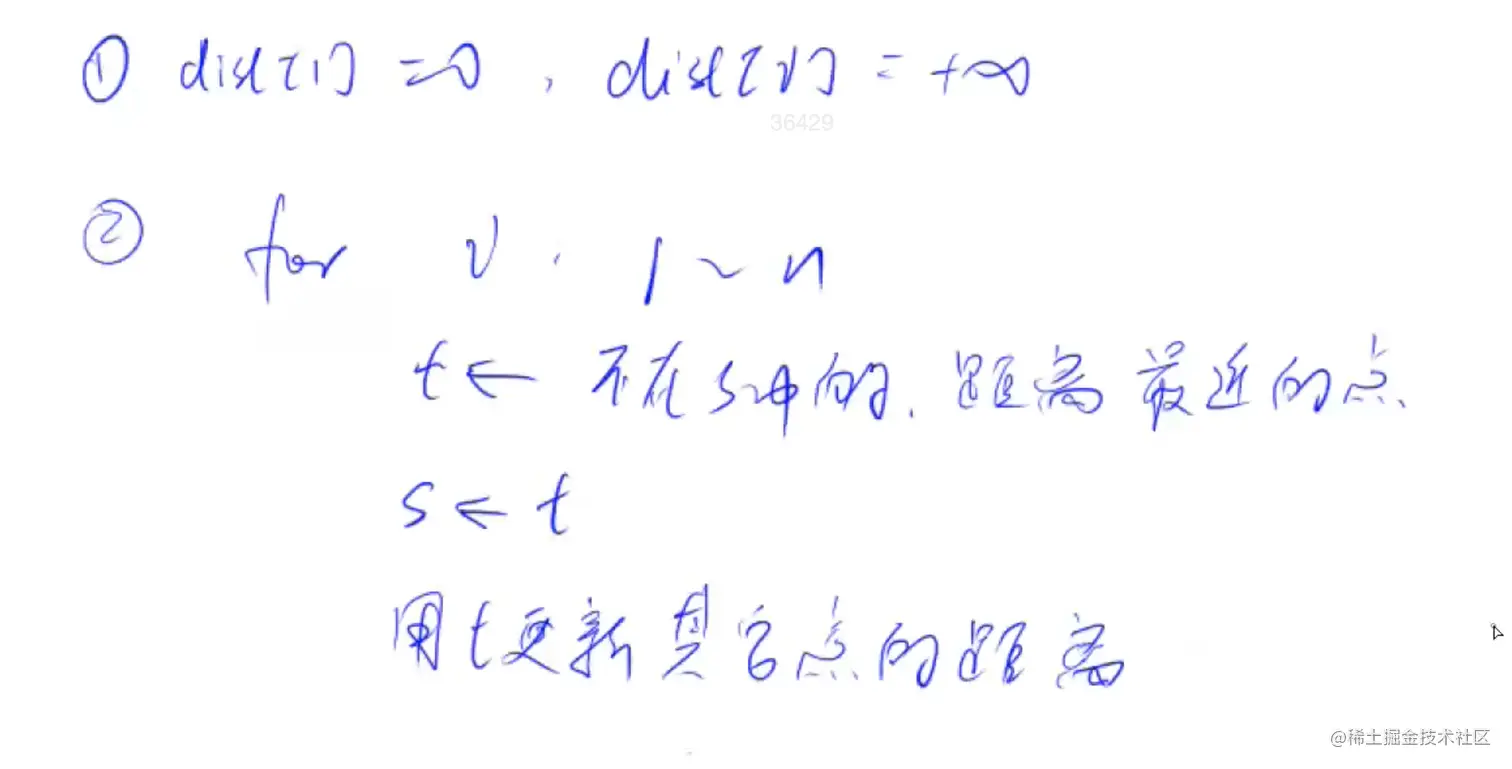 ① dist[1] = 0, dist[v] = +∞
36429
② for v: 1 ~ n
t ← 不在s中的, 距离最近的点.
s ← t
用t更新其它点的距离
@稀土掘金技术社区